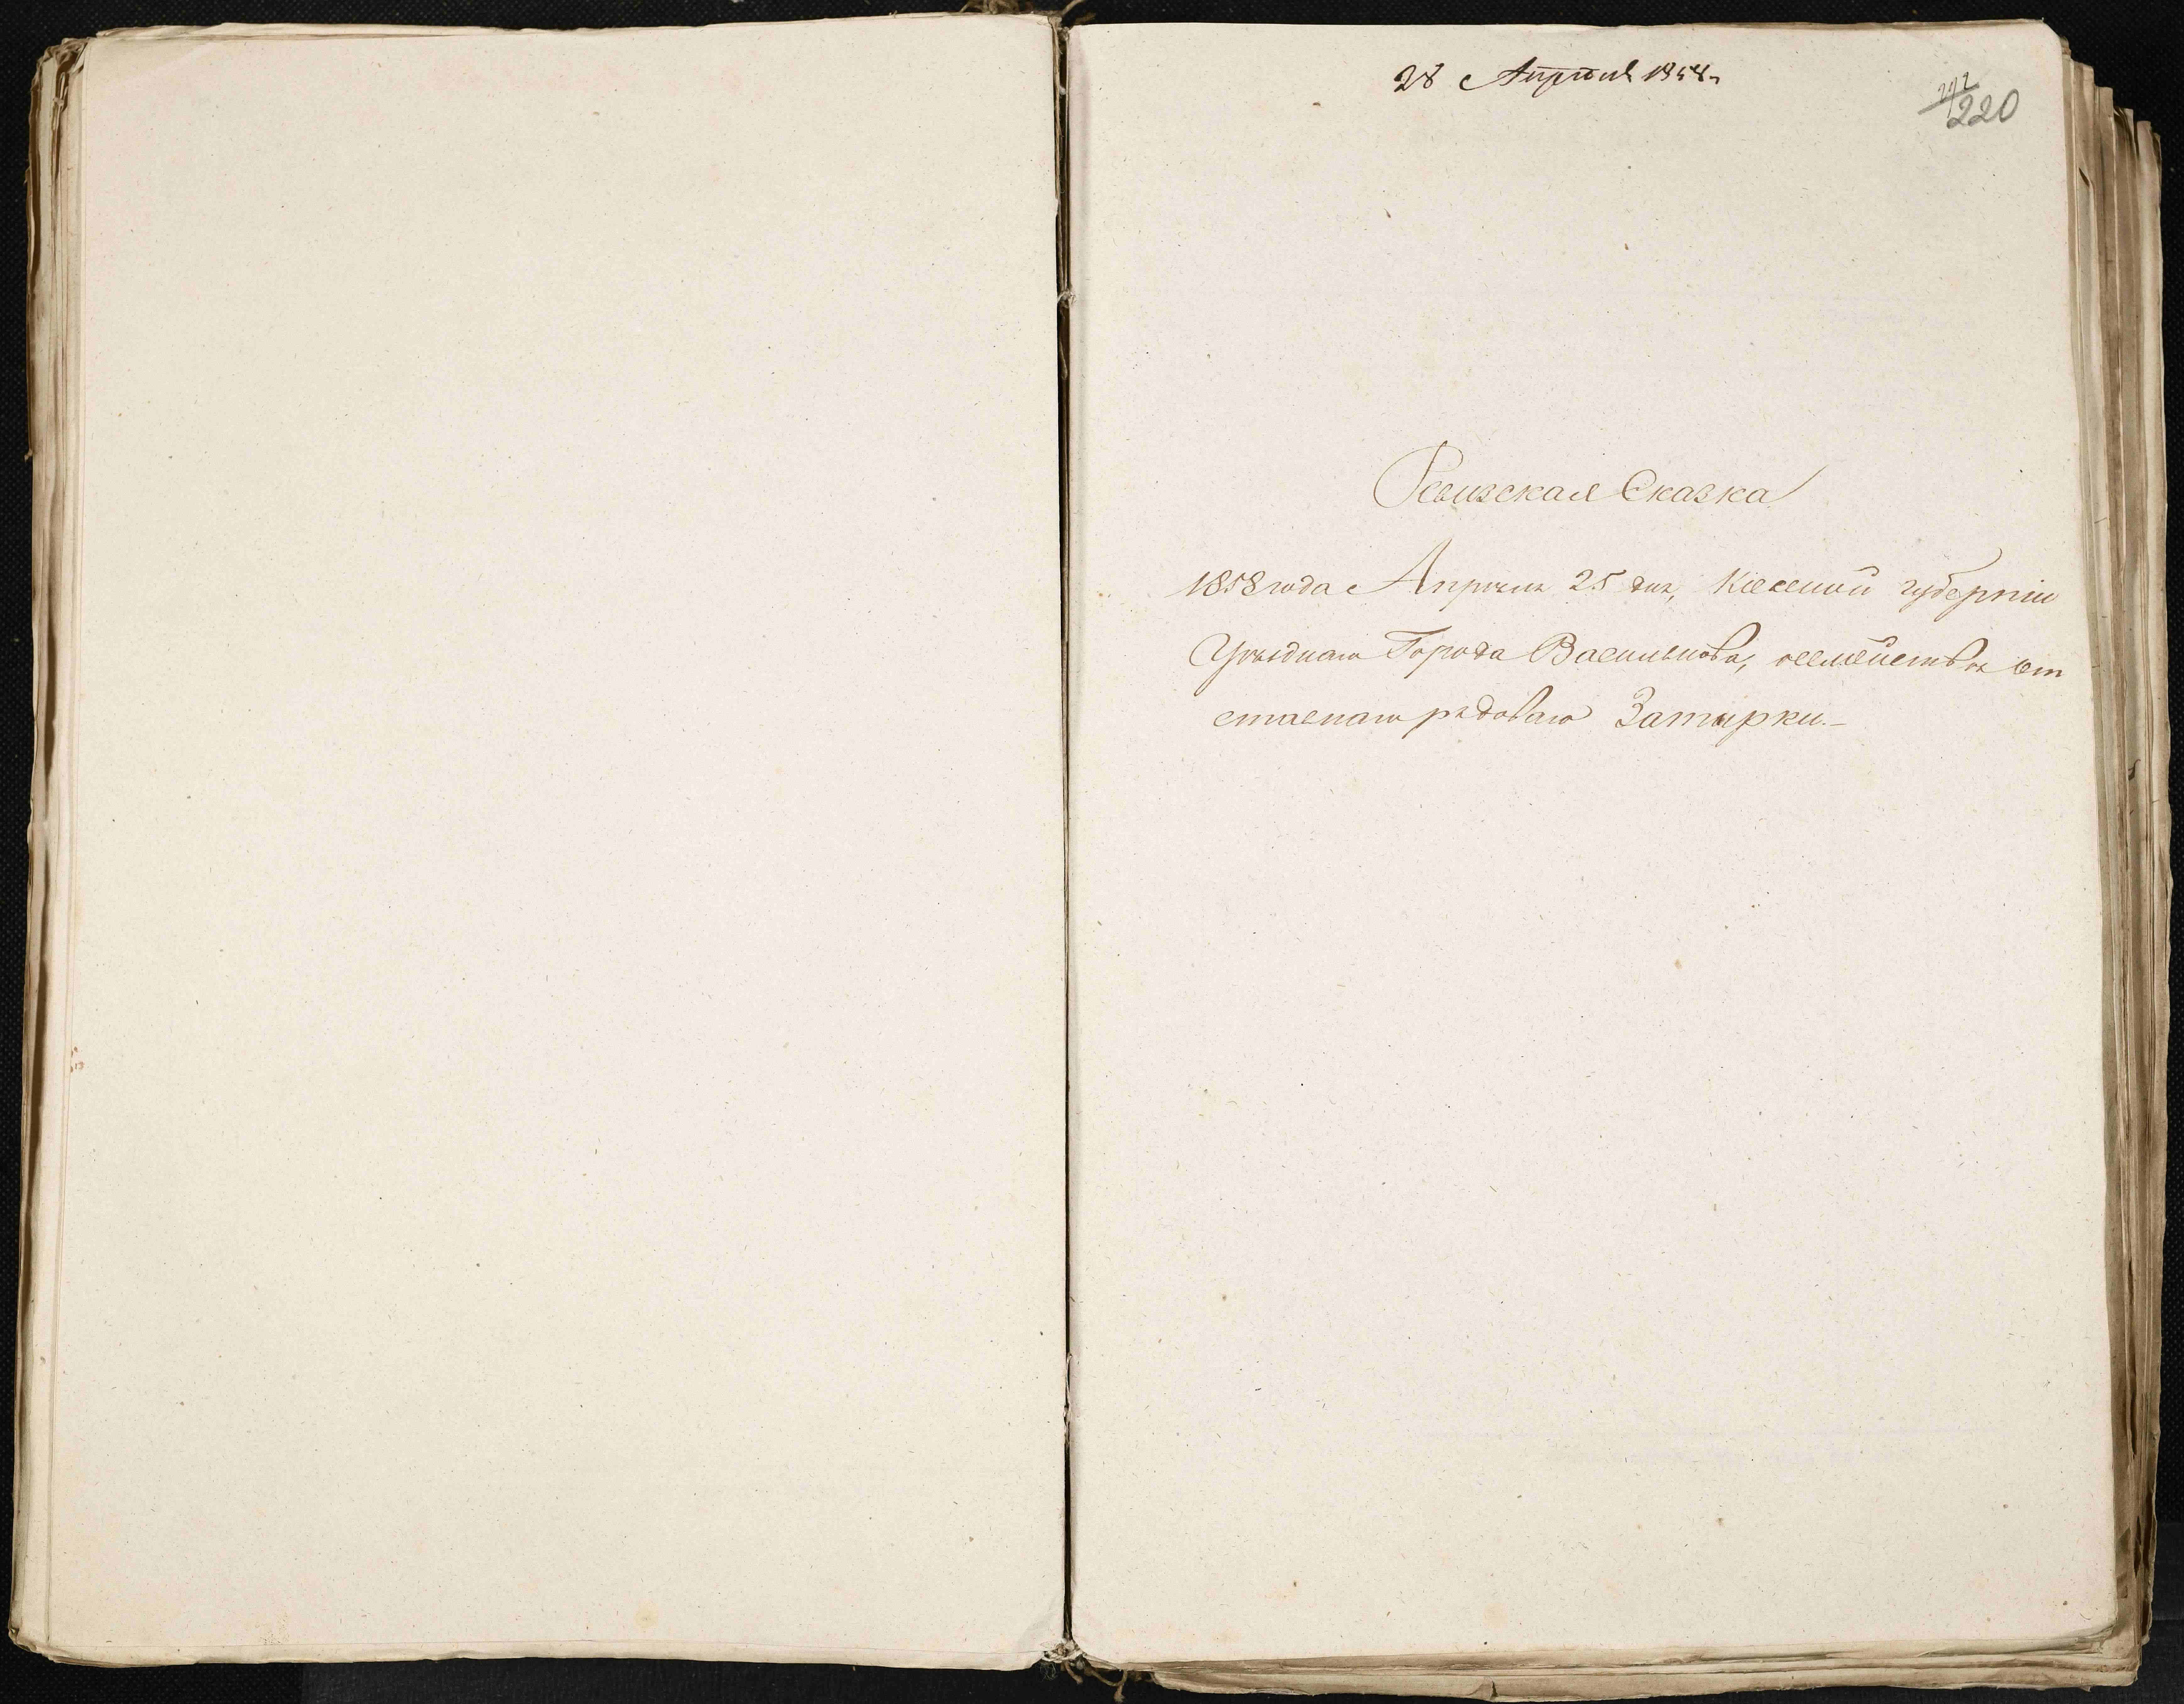 28 Апрѣля 1858 г.
220
Ревизская Сказка
1858 года Апрѣля 25 дня, Кіевской губерніи
Уѣзднаго Города Василькова, о семействѣ от
ставнаго рядоваго Затирки.